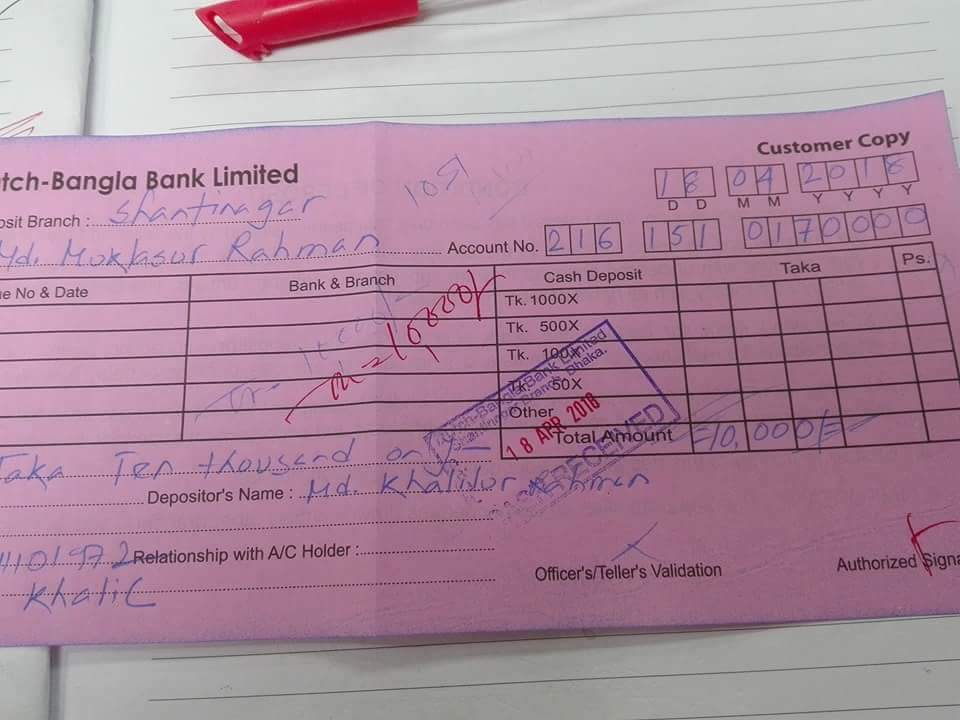 Customer Copy
tch-Bangla Bank Limited
109
18 04 2018
D D M M Y Y Y Y
osit Branch : Shantinagar
Md. Muklasur Rahman Account No. 216 151 0170000
e No & Date Bank & Branch Cash Deposit Taka Ps.
Tk. 1000X
Tk. 500X
Tk. 100X
Tk. 50X
Other
Total Amount =10,000/=
10000/
Dutch-Bangla Bank Limited
Shantinagar Branch, Dhaka.
18 APR 2018
RECEIVED
Taka Ten thousand only
Depositor's Name : Md. Khalilur Rahman
1101972 Relationship with A/C Holder :
Khalil
Officer's/Teller's Validation
Authorized Signa